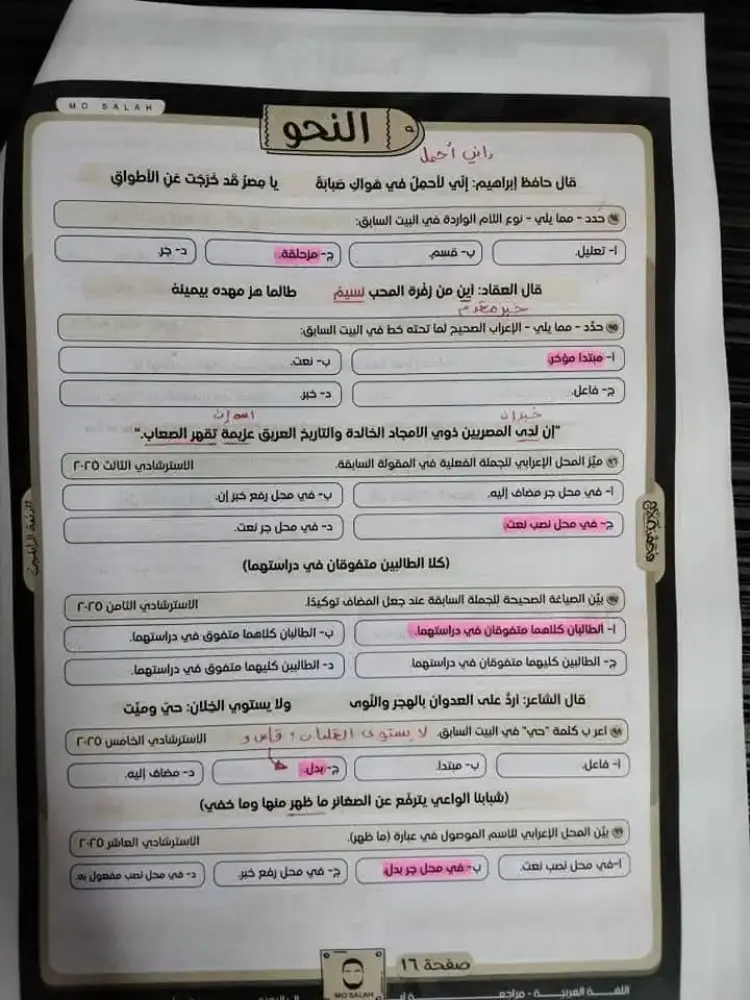 MO SALAH
النحو
وإني أحمل
قال حافظ إبراهيم: إنّي لأحمِلُ في هَواكِ صَبابَةً يا مِصرُ قَد خَرَجَت عَنِ الأَطواقِ
٩٤ حدد - مما يلي - نوع اللام الواردة في البيت السابق:
أ- تعليل. ب- قسم. ج- مزحلقة. د- جر.
قال العقاد: أين من زفرة المحب نسيمٌ طالما هز مهده بيمينه
خبر مقدم
٩٥ حدّد - مما يلي - الإعراب الصحيح لما تحته خط في البيت السابق:
أ- مبتدا مؤخر. ب- نعت.
ج- فاعل. د- خبر.
خبر إن اسم إن
"إن لدى المصريين ذوي الامجاد الخالدة والتاريخ العريق عزيمة تقهر الصعاب."
٩٦ ميّز المحل الإعرابي للجملة الفعلية في المقولة السابقة. الاسترشادي الثالث ٢٠٢٥
أ- في محل جر مضاف إليه. ب- في محل رفع خبر إن.
ج- في محل نصب نعت د- في محل جر نعت.
(كلا الطالبين متفوقان في دراستهما)
٩٧ بيّن الصياغة الصحيحة للجملة السابقة عند جعل المضاف توكيدًا. الاسترشادي الثامن ٢٠٢٥
أ- الطالبان كلاهما متفوقان في دراستهما. ب- الطالبان كلاهما متفوق في دراستهما.
ج- الطالبين كليهما متفوقان في دراستهما. د- الطالبين كليهما متفوق في دراستهما.
قال الشاعر: اردُ على العدوان بالهجر والنّوى ولا يستوي الخِلان: حيّ وميّت
٩٨ اعرب كلمة "حي" في البيت السابق. لا يستوى القلبان: قاس و الاسترشادي الخامس ٢٠٢٥
أ- فاعل. ب- مبتدا. ج- بدل. د- مضاف إليه.
(شبابنا الواعي يترفّع عن الصغائر ما ظهر منها وما خفي)
٩٩ بيّن المحل الإعرابي للاسم الموصول في عبارة (ما ظهر). الاسترشادي العاشر ٢٠٢٥
أ-في محل نصب نعت. ب- في محل جر بدل. ج- في محل رفع خبر. د- في محل نصب مفعول به.
صفحة ١٦
MO SALAH
اللغة العربية - مراجعة